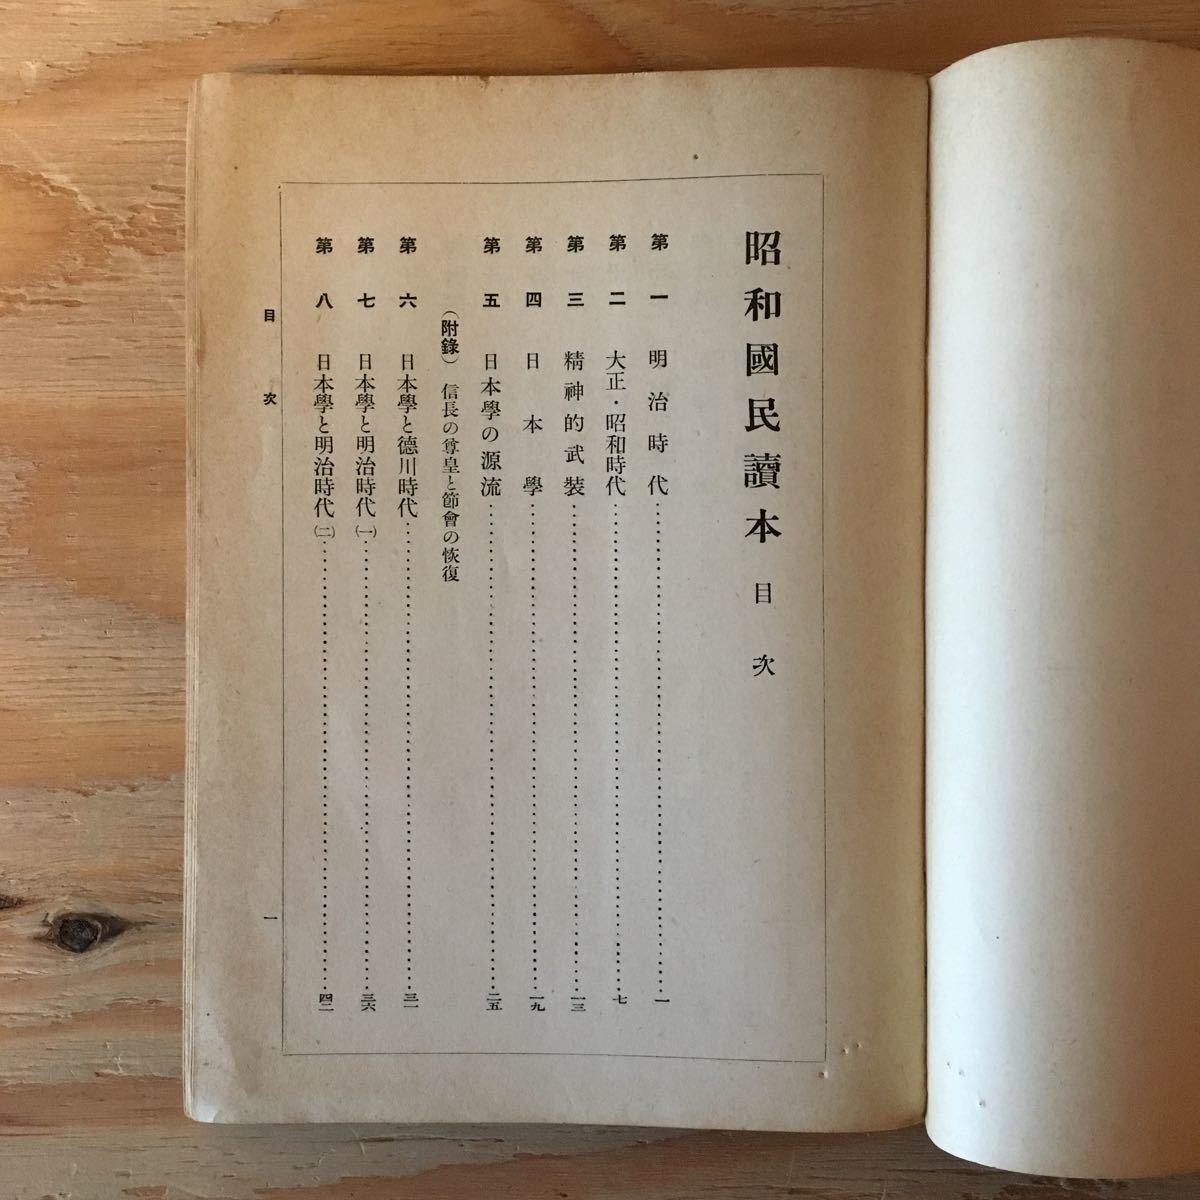 昭和國民讀本 目次
第一 明治時代 一
第二 大正・昭和時代 七
第三 精神的武裝 一三
第四 日本學 一九
第五 日本學の源流 二五
（附錄） 信長の尊皇と節會の恢復
第六 日本學と德川時代 三一
第七 日本學と明治時代（一） 三六
第八 日本學と明治時代（二） 四二
目次 一